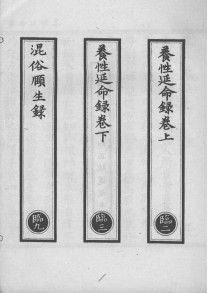 養性延命録卷上
臨二
養性延命録卷下
臨三
混俗頤生録
臨九